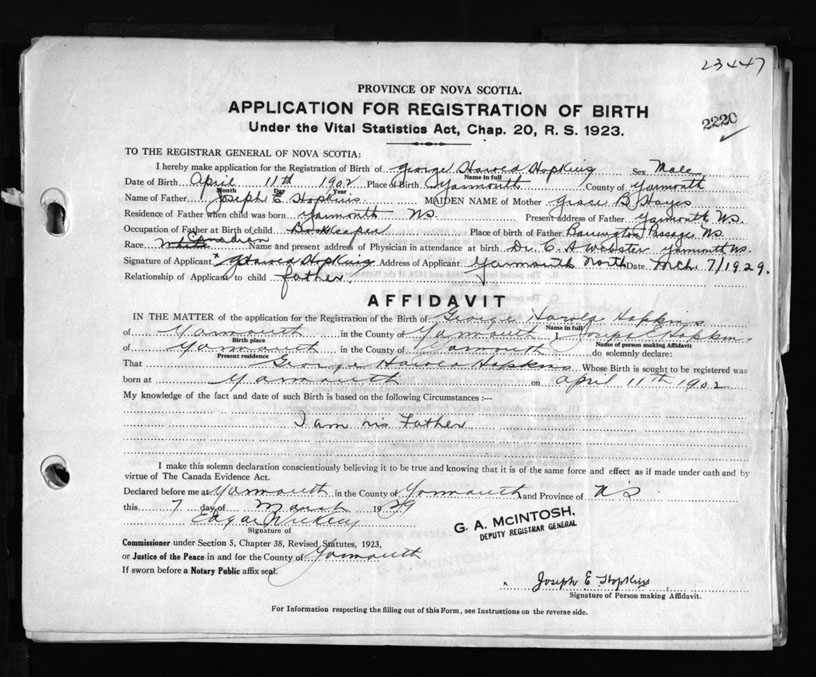 23447
PROVINCE OF NOVA SCOTIA.
APPLICATION FOR REGISTRATION OF BIRTH
2220
Under the Vital Statistics Act, Chap. 20, R. S. 1923.
TO THE REGISTRAR GENERAL OF NOVA SCOTIA:
I hereby make application for the Registration of Birth of George Harold Hopkins Sex Male
Name in full
Date of Birth April 11th 1902 Place of Birth Yarmouth County of Yarmouth
Month Day Year
Name of Father Joseph E Hopkins MAIDEN NAME of Mother Grace B Hayes
Residence of Father when child was born Yarmouth NS. Present address of Father Yarmouth N.S.
Occupation of Father at Birth of child Bookkeeper Place of birth of Father Barrington Passage NS.
Canadian
Race White Name and present address of Physician in attendance at birth Dr. C. A Webster Yarmouth NS.
Signature of Applicant x G Harold Hopkins Address of Applicant Yarmouth North Date Mch. 7/1929.
Relationship of Applicant to child father.
AFFIDAVIT
IN THE MATTER of the application for the Registration of the Birth of George Harold Hopkins
Name in full
of Yarmouth in the County of Yarmouth, Joseph E Hopkins
Birth place Name of person making Affidavit
of Yarmouth in the County of Yarmouth do solemnly declare:
Present residence
That George Harold Hopkins Whose Birth is sought to be registered was
born at Yarmouth on April 11th 1902
My knowledge of the fact and date of such Birth is based on the following Circumstances :—
I am his Father
I make this solemn declaration conscientiously believing it to be true and knowing that it is of the same force and effect as if made under oath and by
virtue of The Canada Evidence Act.
Declared before me at Yarmouth in the County of Yarmouth and Province of N S
this 7 day of March 1929
Edgar
Signature of
G. A. McINTOSH,
DEPUTY REGISTRAR GENERAL
Commissioner under Section 5, Chapter 38, Revised Statutes, 1923,
or Justice of the Peace in and for the County of Yarmouth
If sworn before a Notary Public affix seal.
x Joseph E Hopkins
Signature of Person making Affidavit.
For Information respecting the filling out of this Form, see Instructions on the reverse side.